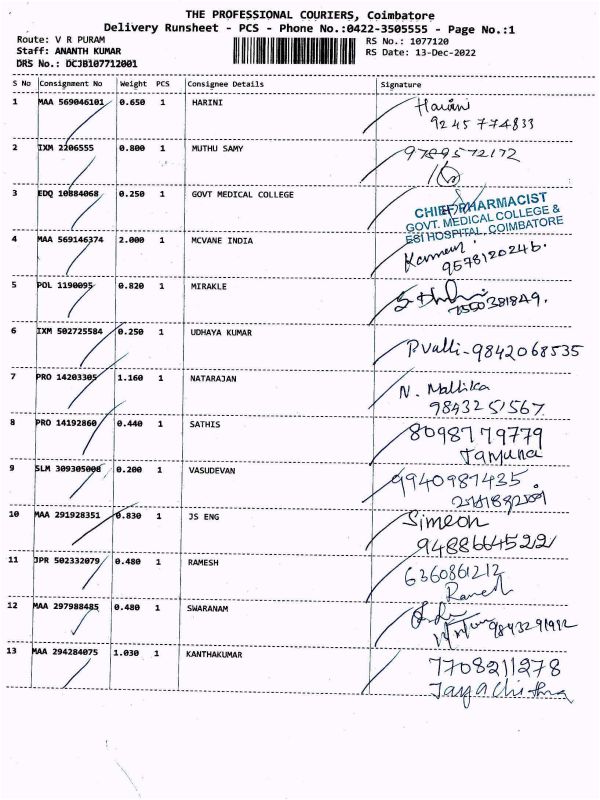 THE PROFESSIONAL COURIERS, Coimbatore
Delivery Runsheet - PCS - Phone No.:0422-3505555 - Page No.:1
Route: V R PURAM RS No.: 1077120
Staff: ANANTH KUMAR RS Date: 13-Dec-2022
DRS No.: DCJB107712001
S No Consignment No Weight PCS Consignee Details Signature
1 MAA 569046101 0.650 1 HARINI Harini
9245774833
2 IXM 2206555 0.800 1 MUTHU SAMY 9789572172
3 EDQ 10884068 0.250 1 GOVT MEDICAL COLLEGE CHIEF PHARMACIST
GOVT. MEDICAL COLLEGE &
ESI HOSPITAL, COIMBATORE
4 MAA 569146374 2.000 1 MCVANE INDIA
9578120246.
5 POL 1190095 0.820 1 MIRAKLE
6 IXM 502725584 0.250 1 UDHAYA KUMAR P.Valli-9842068535
7 PRO 14203305 1.160 1 NATARAJAN N. Mallika
9843251567
8 PRO 14192860 0.440 1 SATHIS 8098779779
Jamuna
9 SLM 309305008 0.200 1 VASUDEVAN 9940987435.
10 MAA 291928351 0.830 1 JS ENG Simeon
9488664522
11 JPR 502332079 0.480 1 RAMESH 6360861212
Ramesh
12 MAA 297988485 0.480 1 SWARANAM
9843291912
13 MAA 294284075 1.030 1 KANTHAKUMAR 7708211278
Jayachithra